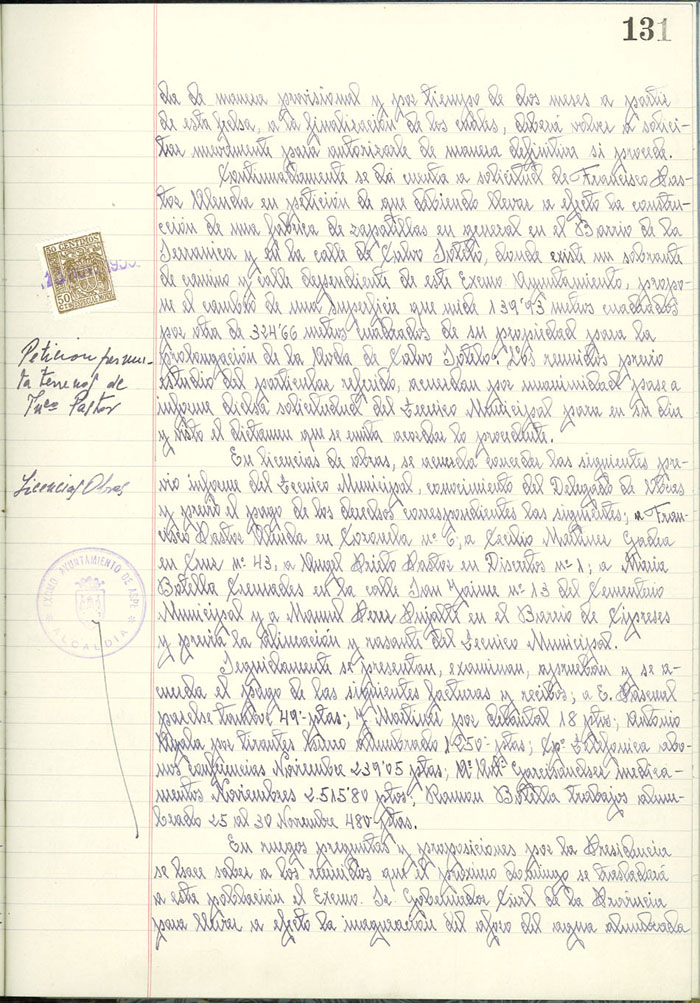 131
da de manera provisional y por tiempo de dos meses a partir
de esta fecha, a la finalización de los cuales, deberá volver a solici-
tar nuevamente para autorizarle de manera definitiva si procede.
Continuadamente se dá cuenta a solicitud de Francisco Pas-
tor Alenda en petición de que debiendo llevar a efecto la construc-
ción de una fabrica de zapatillas en general en el Barrio de la
Serranica y en la calle de Calvo Sotelo, donde existe un sobrante
de camino y calle dependiente de este Excmo Ayuntamiento, propo-
ne el cambio de una superficie que mide 139'93 metros cuadrados
por otra de 324'66 metros cuadrados de su propiedad para la
prolongación de la Ronda de Calvo Sotelo. Los reunidos previo
estudio del particular referido, acuerdan por unanimidad pase a
informe dicha solicitud del Tecnico Municipal para en su dia
y visto el dictamen que se emita acordar lo procedente.
En licencias de obras, se acuerda conceder las siguientes pre-
vio informe del Tecnico Municipal, conocimiento del Delegado de Obras
y previo el pago de los derechos correspondientes las siguientes; a Fran-
cisco Pastor Alenda en Coronela nº 6; a Cecilio Martinez
en Cruz nº 43, a Angel Prieto Pastor en Discritos nº 1; a Maria
Botella Cremades en la calle San Jaime nº 13 del Cementerio
Municipal y a Manuel en el Barrio de Cipreses
y previa la alineación y rasante del Tecnico Municipal.
Seguidamente se presentan, examinan, aprueban y se a-
cuerda el pago de las siguientes facturas y recibos; a E. Pascual
tambor 49'- ptas; J Martinez por delantal 18 ptas; Antonio
Ayala por tirantes hierro alumbrado 1.250'- ptas; Cpª Telefonica abo-
nos conferencias Noviembre 239'05 ptas; Mª medica-
mentos Noviembres 2.515'80 ptas; Ramon Botella trabajos alum-
brado 25 al 30 Noviembre 480- ptas.
En ruegos preguntas y proposiciones por la Presidencia
se hace saber a los reunidos que el próximo domingo se trasladará
a esta población el Excmo. Sr. Gobernador Civil de la Provincia
para llevar a efecto la inaguración del aforo del agua alumbrada
50 CENTIMOS
50
Peticion permu-
ta terrenos de
Frco Pastor
Licencias Obras
EXCMO. AYUNTAMIENTO DE ASPE
ALCALDIA